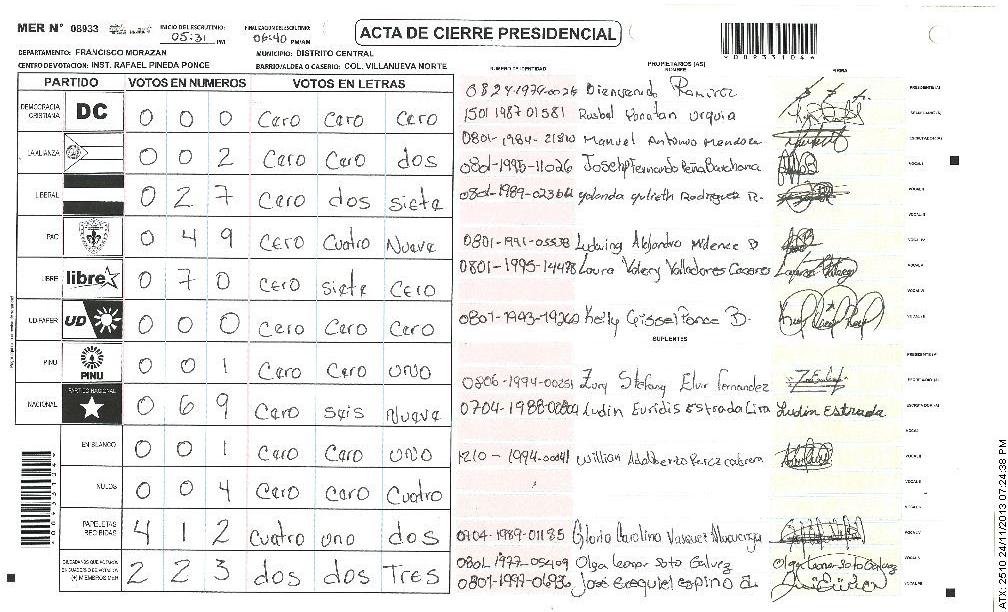 MER N° 08933 INICIO DEL ESCRUTINIO: 05:31 PM FINALIZACION DEL ESCRUTINIO: 06:40 PM/AM ACTA DE CIERRE PRESIDENCIAL
DEPARTAMENTO: FRANCISCO MORAZAN MUNICIPIO: DISTRITO CENTRAL
CENTRO DE VOTACION: INST. RAFAEL PINEDA PONCE BARRIO/ALDEA O CASERIO: COL. VILLANUEVA NORTE
PARTIDO VOTOS EN NUMEROS VOTOS EN LETRAS
DEMOCRACIA CRISTIANA DC 0 0 0 Cero Cero Cero
LA ALIANZA 0 0 2 Cero Cero dos
LIBERAL 0 2 7 Cero dos siete
PAC 0 4 9 Cero Cuatro Nueve
LIBRE libre 0 7 0 Cero siete Cero
UD-FAPER UD 0 0 0 Cero Cero Cero
PINU PINU 0 0 1 Cero Cero UNO
NACIONAL PARTIDO NACIONAL 0 6 9 Cero seis Nueve
EN BLANCO 0 0 1 Cero Cero UNO
NULOS 0 0 4 Cero Cero Cuatro
PAPELETAS RECIBIDAS 4 1 2 Cuatro uno dos
CIUDADANOS QUE VOTARON 2 2 3 dos dos Tres
(+) MIEMBROS MER
NUMERO DE IDENTIDAD PROPIETARIOS (AS) NOMBRE FIRMA
Bienvenido Ramirez PRESIDENTE(A)
1501 1987 01581 Rusbel Yonatan Urquia SECRETARIO(A)
0801-1984-21810 Manuel Antonio Mendoza ESCRUTADOR(A)
0801-1995-11026 Joseph Fernando Peña Barahona VOCAL I
Yolanda Yulieth Rodriguez R. VOCAL II
VOCAL III
0801-1991-05538 Ludwing Alejandro Midence B VOCAL IV
0801-1995-14478 Laura Valery Valladares Caceres VOCAL V
VOCAL VI
Keily Gissel Ponce B.
SUPLENTES
PRESIDENTE(A)
0806-1994-00251 Zury Stefany Elvir Fernandez SECRETARIO(A)
Ludin Euridis Estrada Lira Ludin Estrada ESCRUTADOR(A)
VOCAL I
1210-1994-00041 Willian Adalberto Perez Cabrera VOCAL II
0704-1989-01185 Gloria Carolina Vasquez
0801-1977-05409 Olga Leonor Soto Galvez Olga Leonor Soto Galvez
José Ezequiel Espino
ATX:2510 24/11/2013 07:24:38 PM